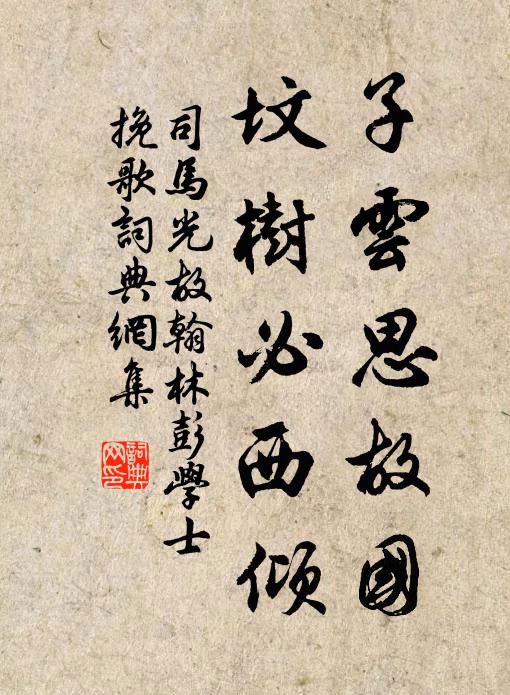 子雲思故國
坟樹必西傾
司馬光故翰林彭學士
挽歌詞典網集
詞典網印